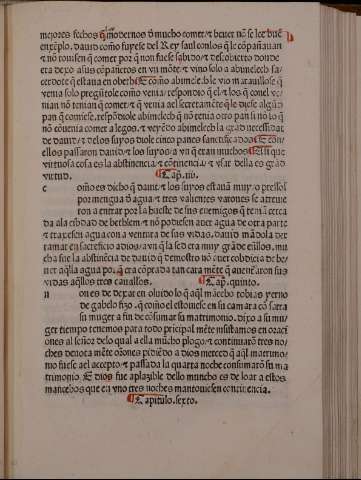 mejores fechos q̃ modernos ð mucho comer / τ bever nõ se lee buẽ
enxẽplo. david como fuyese del Rey saul con los q̃ le cõpañauan
τ nõ touiesen q̃ comer por q̃ non fuese sabido / τ descobierto donde
era dexo a sus cõpañeros en vn mõte / τ vino solo a abimelech sa-
cerdote q̃ estaua en obeth Como abimelech le vio marauillose q̃
venia solo pregũtole como venia / respondio q̃ el / τ los q̃ conel ve-
nian nõ tenian q̃ comer / τ q̃ venia ael secretamẽte q̃ le diese algũd
pan q̃ comiese. respõdiole abimelech q̃ nõ tenia otro pan si nõ lo q̃
nõ cõuenia comer a legos. τ veyẽdo abimelech la grãd necessidad
de dauid / τ delos suyos diole cinco panes santificados τ con
ellos passaron dauid / τ los suyos a vn q̃ eran muchos Assi que
virtuosa cosa es la abstinencia / τ continẽcia / τ vsar della es grãd
virtud. Cap. iiii.
c omo es dicho q̃ dauid / τ los suyos estauã muy opressos
por mengua ð agua / τ tres valientes varones se atreuie
ron a entrar por la hueste de sus enemigos q̃ teniã cerca
da ala cibdad de bethlem / τ nõ podiesen auer agua de otra parte
τ traxesen agua con a ventura de sus vidas. dauid mãdola der
ramar en sacreficio a dios / a vn q̃ la sed era muy grãde enllos. mu
cha fue la abstinẽcia de dauid q̃ demostro nõ auer cobdicia de be
uer aq̃lla agua por q̃ era cõprada tan cara mẽte q̃ auenturon sus
vidas aq̃llos tres cauallos. Cap. quinto.
n on es de dexar en oluido lo q̃ aq̃l mãcebo tobias yerno
de gabelo fizo. q̃ como el estouiese en su camara cõ sarra
su muger a fin de cõsumar su matrimonio. dixo a su mu
ger tiempo tenemos para todo pricipal mẽte insistamos en oraci
ones al señor delo qual a ella mũcho plogo / τ continuarõ tres no
ches deuota mẽte orõnes pidiẽdo a dios merced q̃ aq̃l matrimo
nio fuese ael accepto / τ passada la quarta noche consumarõ su ma
trimonio. E dios fue aplazible dello muncho es de loar a estos
mancebos que en vno tres noches mantouiesen continencia.
Capitulo. sexto.